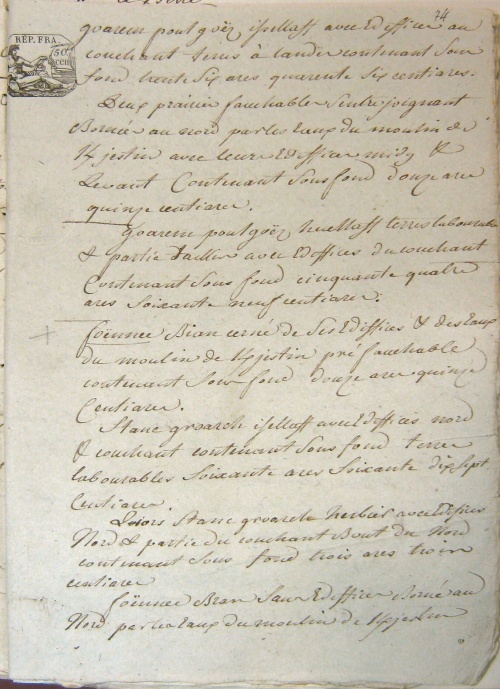 74
REP. FRA.
50
cen
goarem poul goëz isellaff avec Ediffices au
couchant tenis à lande contenant Sous
fond trente Six ares quarente Six centiares.
Deux prairies fauchables S'entrejoignant
Bornée au nord par les Eaux du moulin de
Kjestin avec leurs Ediffices midy &
Levant Contenant Sous fond douze ares
quinze centiares.
goarem poul goëz huellaff terres labourables
& partie Taillis avec Ediffices du couchant
Contenant Sous fond cinquante quatre
ares Soixante neuf centiares.
foënnec Bian cerné de Ses Ediffices & des Eaux
du moulin de Kjestin pré fauchable
contenant Sous fond douze ares quinze
Centiares.
Stanc groarch isellaff avec Ediffices nord
& couchant contenant Sous fond terre
labourables Soixante ares Soixante dix Sept
Centiares.
Liors Stanc groarch herbier avec Ediffices
Nord & partie du couchant Bout du Nord
contenant Sous fond trois ares trois
centiares
foënnec Bran Sans Ediffices Borné au
Nord par les Eaux du moulin de Kjestin